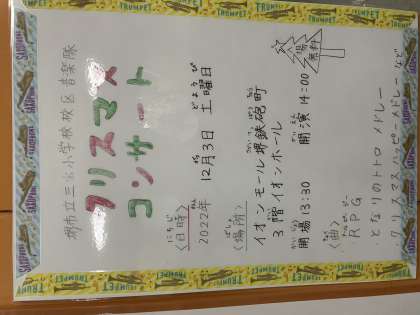 堺市立三宝小学校校区音楽隊
クリスマス
コンサート
入場
無料
〈日時〉
2022年 12月3日 土曜日
〈場所〉
イオンモール堺鉄砲町
3階イオンホール
開場 13:30 開演 14:00
〈曲〉
RPG
となりのトトロ メドレー
クリスマスハッピーメドレーなど
TRUMPET